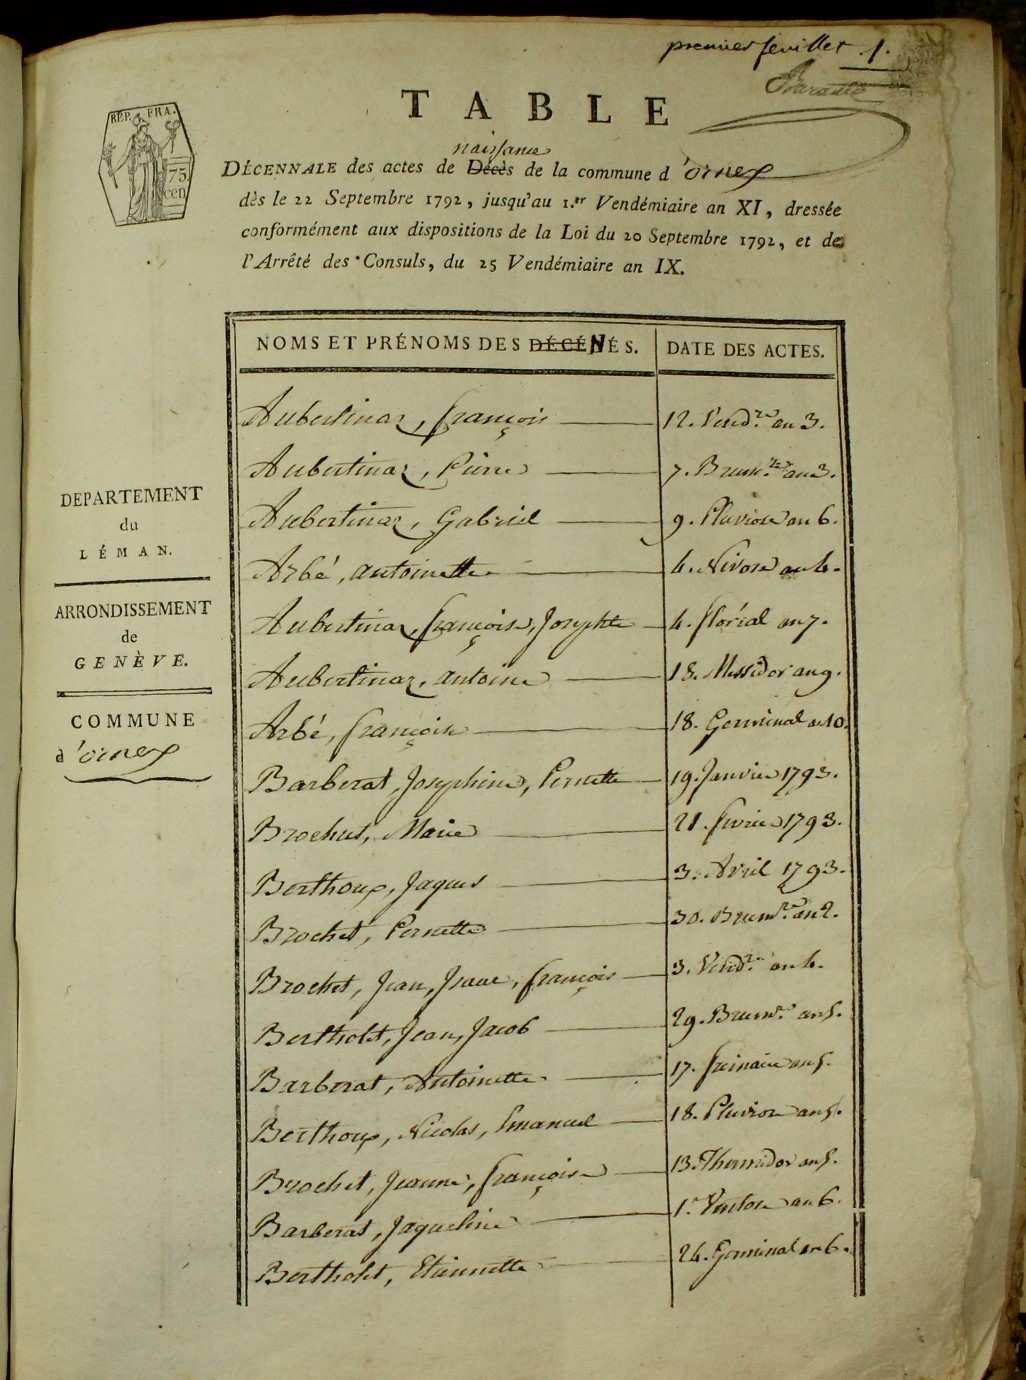 premier feuillet .1.
REP. FRA.
75
cen
TABLE
naissance
DÉCENNALE des actes de Décès de la commune d'ornex
dès le 22 Septembre 1792, jusqu'au 1.er Vendémiaire an XI, dressée
conformément aux dispositions de la Loi du 20 Septembre 1792, et de
l'Arrêté des Consuls, du 25 Vendémiaire an IX.
NOMS ET PRÉNOMS DES DÉCÉNÉS. DATE DES ACTES.
DEPARTEMENT
du
LÉMAN.
ARRONDISSEMENT
de
GENÈVE.
COMMUNE
d'ornex
Aubertinaz, françois 12. Vend.re an 3.
Aubertinaz, Pierre 7. Brum.re an 3.
Aubertinaz, Gabriel 9. Pluviose an 6.
Arbé, antoinette 4. Nivose an 4.
Aubertinaz, françoise, Josephte 4. floréal an 7.
Aubertinaz, antoine 18. Messidor an 9.
Arbé, françoise 18. Germinal an 10.
Barberat, Josephine, Pernette 19. Janvier 1793.
Brochut, Marie 21. fevrier 1793.
Berthoux, Jaques 3. Avril 1793.
Brochet, Pernette 30. Brum.re an 2.
Brochet, Jean, Isaac, françois 3. Vend.re an 4.
Bertholet, Jean, Jacob 29. Brum.re an 5.
Barberat, Antoinette 17. frimaire an 5.
Berthoux, Nicolas, Emanuel 18. Pluviose an 5.
Brochet, Jeanne, françoise 13. Thermidor an 5.
Barberat, Jaqueline 1.r Ventose an 6.
Bertholet, Etiennette 24. Germinal an 6.